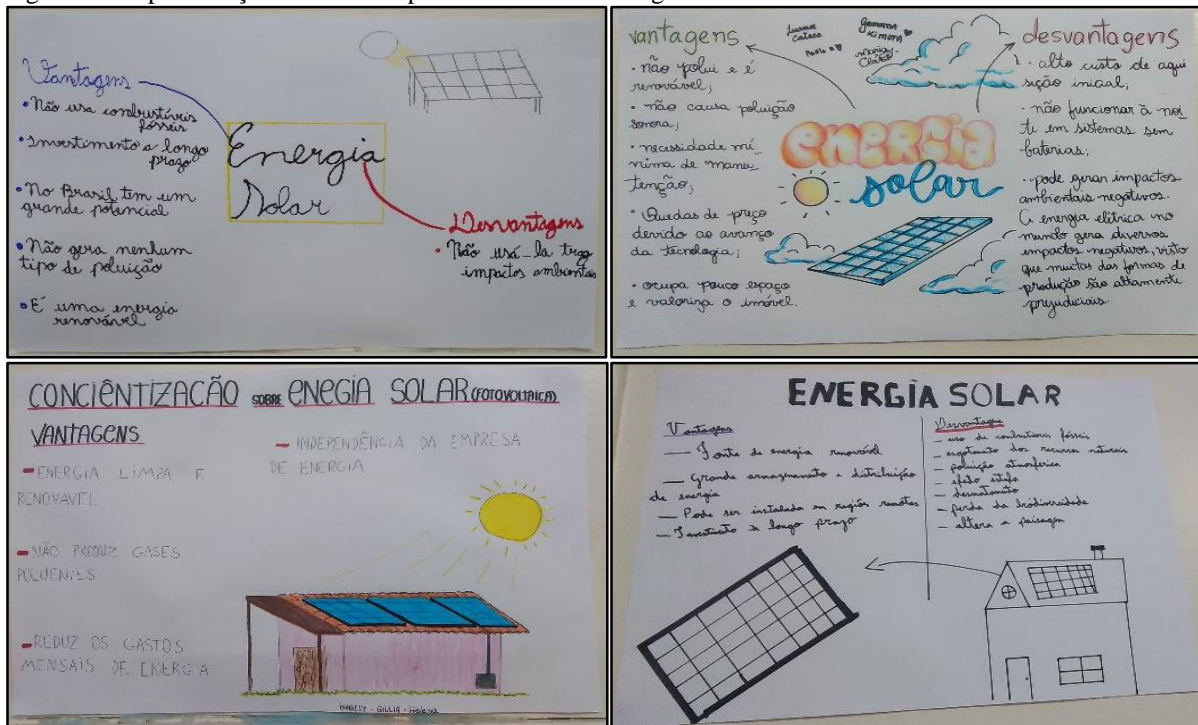 Vantagens
• Não usa combustíveis
fósseis
• Investimento a longo
prazo
• No Brasil tem um
grande potencial
• Não gera nenhum
tipo de poluição
• É uma energia
renovável
Energia
Solar
Desvantagens
• Não usá-la traz
impactos ambientais
vantagens
Luana
Giovana
Kimora
Maria
desvantagens
• não polui e é
renovável;
• não causa poluição
sonora;
• necessidade mí_
nima de manu_
tenção;
• Quedas de preço
devido ao avanço
da tecnologia;
• ocupa pouco espaço
e valoriza o imóvel.
ENERGIA
solar
• alto custo de aqui
sição inicial;
• não funcionar à noi_
te em sistemas sem
baterias;
• pode gerar impactos
ambientais negativos.
A energia elétrica no
mundo gera diversos
impactos negativos, visto
que muitas das formas de
produção são altamente
prejudiciais
CONCIÊNTIZACÃO SOBRE ENEGIA SOLAR (FOTOVOLTAICA)
VANTAGENS
- ENERGIA LIMPA E
RENOVAVEL
- NÃO PRODUZ GASES
POLUENTES
- REDUZ OS GASTOS
MENSAIS DE ENERGIA
- INDEPENDÊNCIA DA EMPRESA
DE ENERGIA
- GIULIA - Helena
ENERGIA SOLAR
Vantagens
— Fonte de energia renovável
— Grande armazenamento e distribuição
de energia
— Pode ser instalada em regiões remotas
— Investimento à longo prazo
Desvantagens
— uso de combustíveis fósseis
— esgotamento dos recursos naturais
— poluição atmosférica
— efeito estufa
— desmatamento
— perda da biodiversidade
— altera a paisagem